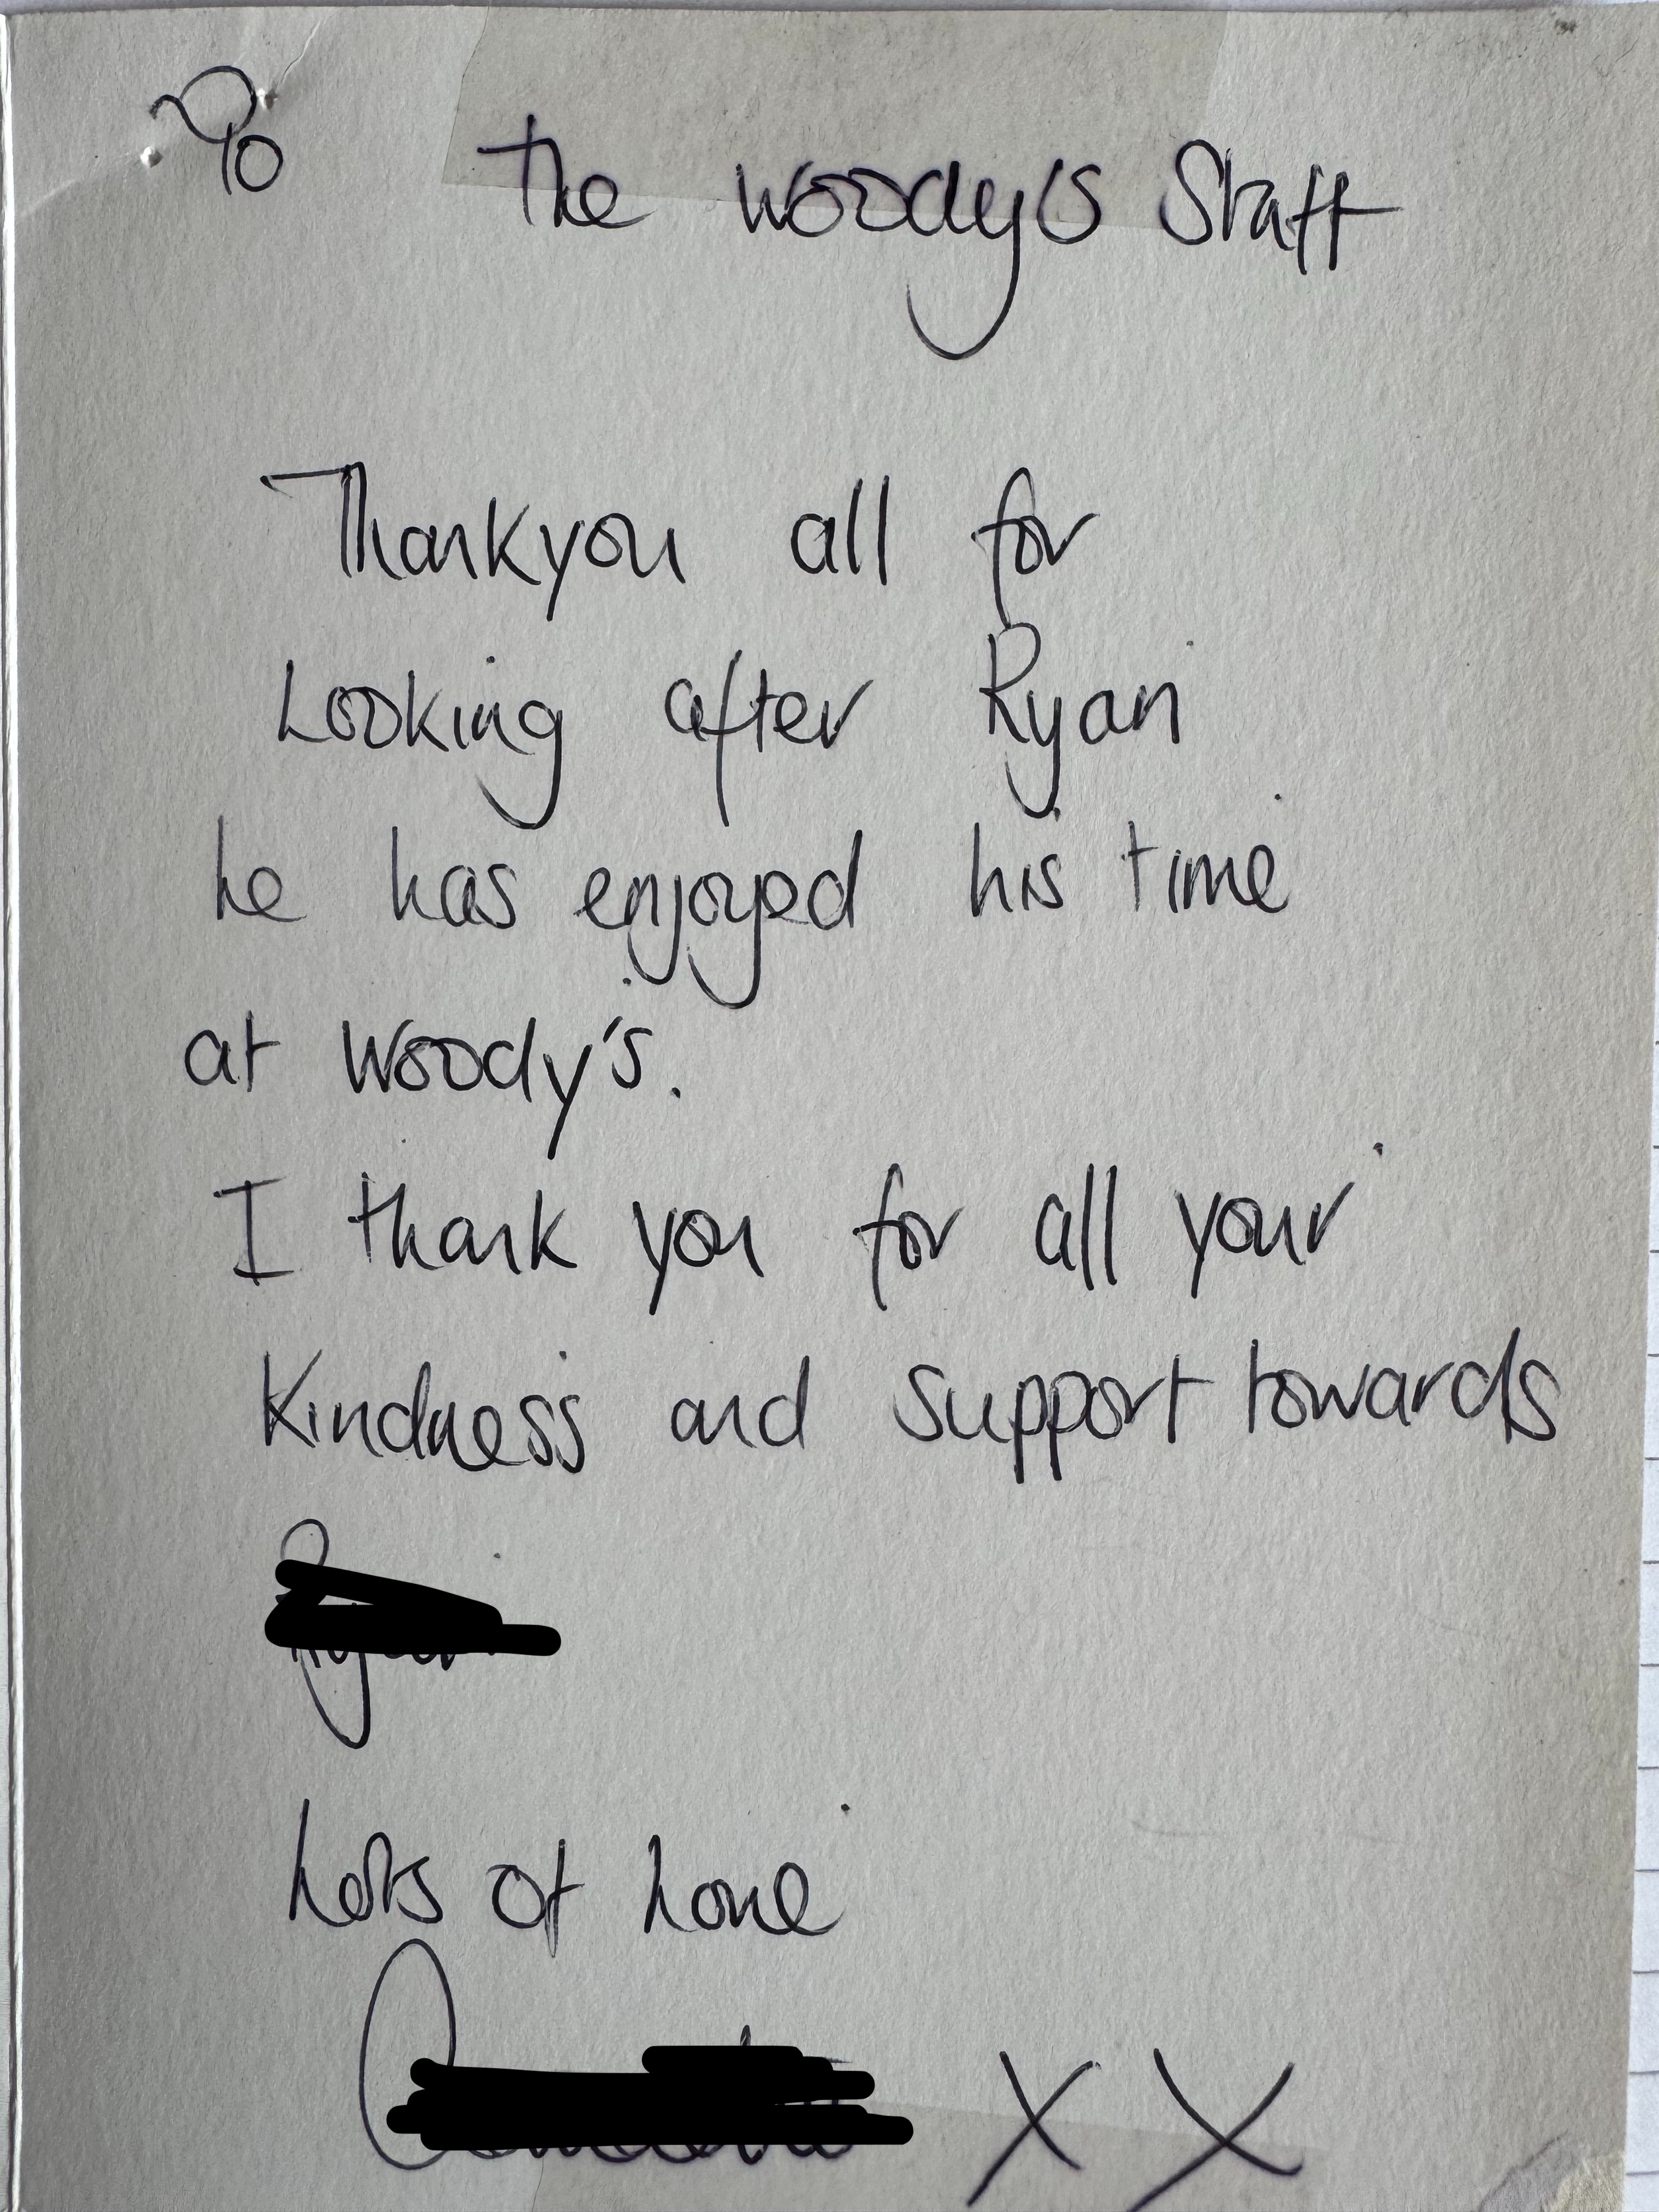 To the Woody's Staff
Thankyou all for
Looking after Ryan
he has enjoyed his time
at Woody's.
I thank you for all your
Kindness and support towards
Lots of Love
X X